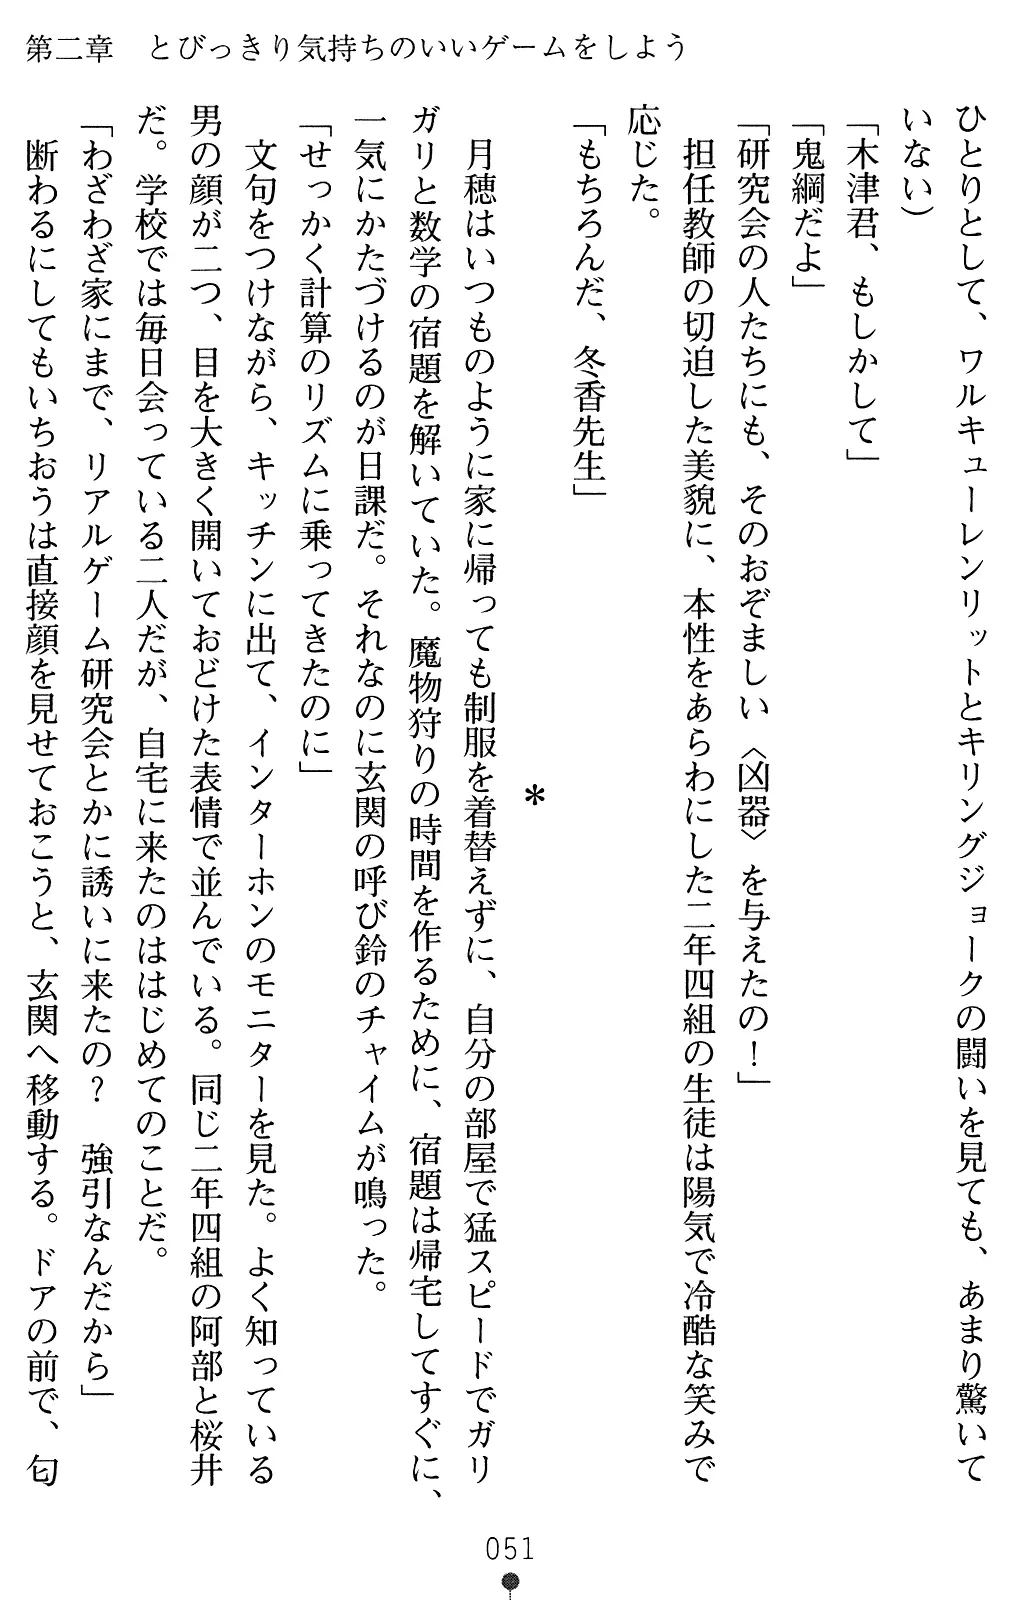 第二章　とびっきり気持ちのいいゲームをしよう
ひとりとして、ワルキューレンリットとキリングジョークの闘いを見ても、あまり驚いて
いない）
「木津君、もしかして」
「鬼綱だよ」
「研究会の人たちにも、そのおぞましい〈凶器〉を与えたの！」
　担任教師の切迫した美貌に、本性をあらわにした二年四組の生徒は陽気で冷酷な笑みで
応じた。
「もちろんだ、冬香先生」
＊
　月穂はいつものように家に帰っても制服を着替えずに、自分の部屋で猛スピードでガリ
ガリと数学の宿題を解いていた。魔物狩りの時間を作るために、宿題は帰宅してすぐに、
一気にかたづけるのが日課だ。それなのに玄関の呼び鈴のチャイムが鳴った。
「せっかく計算のリズムに乗ってきたのに」
　文句をつけながら、キッチンに出て、インターホンのモニターを見た。よく知っている
男の顔が二つ、目を大きく開いておどけた表情で並んでいる。同じ二年四組の阿部と桜井
だ。学校では毎日会っている二人だが、自宅に来たのははじめてのことだ。
「わざわざ家にまで、リアルゲーム研究会とかに誘いに来たの？　強引なんだから」
　断わるにしてもいちおうは直接顔を見せておこうと、玄関へ移動する。ドアの前で、匂
051